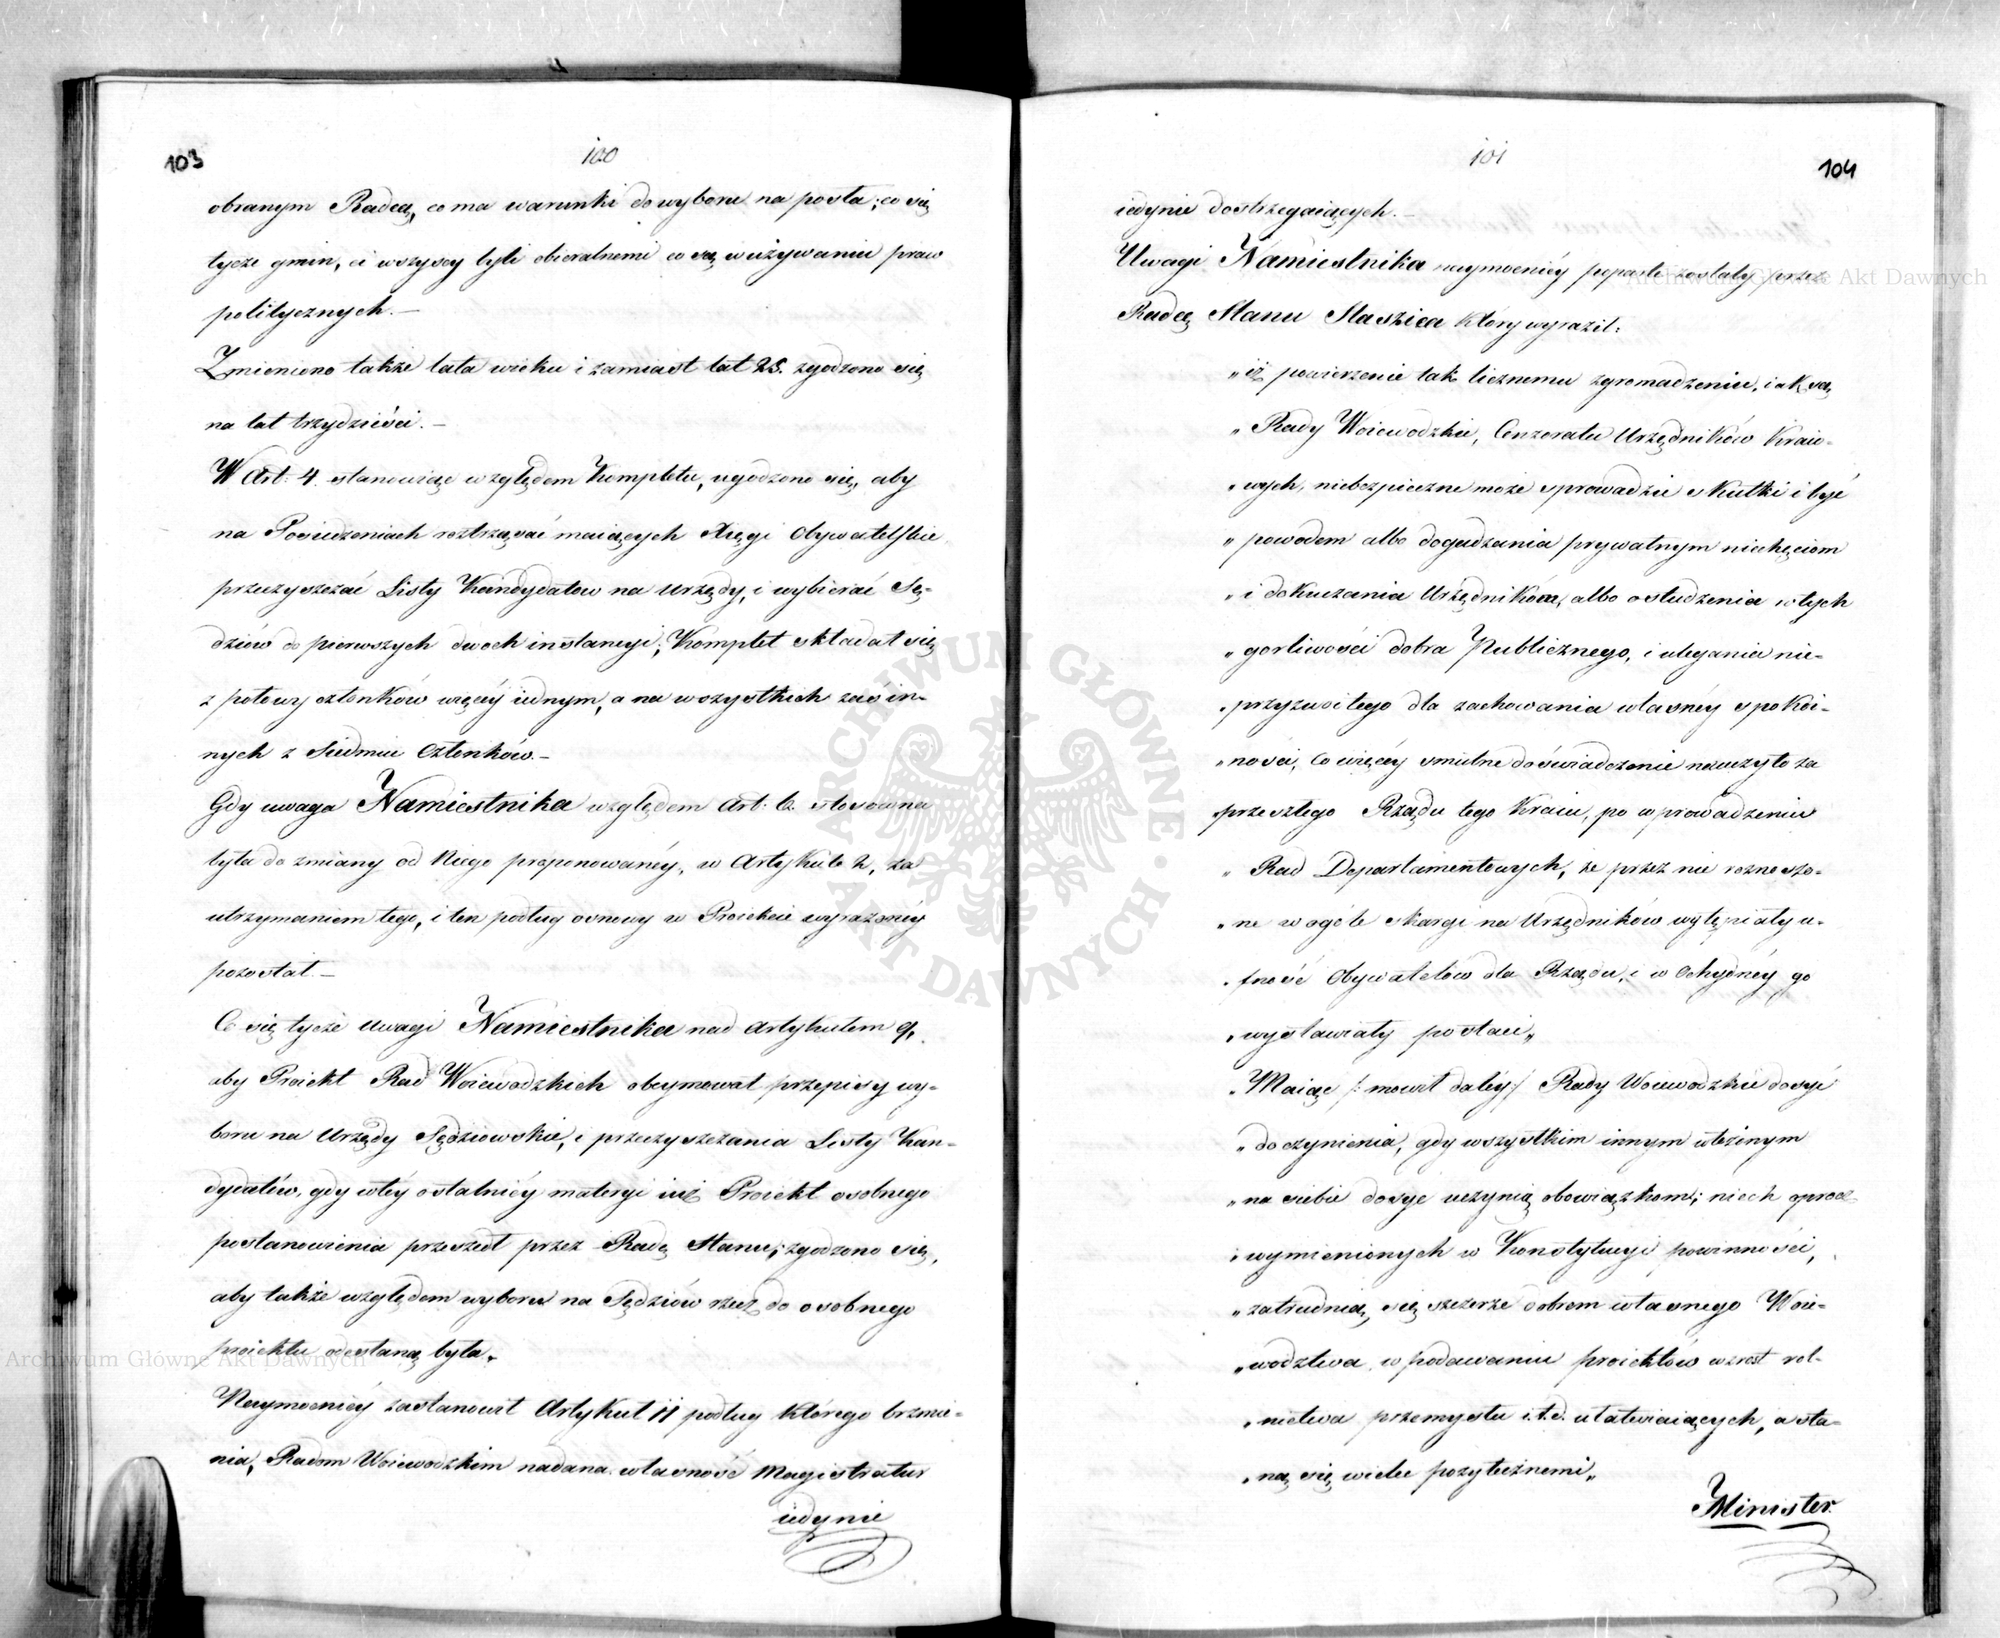 103
100
obranym Radcą, co ma warunki do wyboru na posła; co się
tycze gmin, ci wszyscy byli obieralnemi co są w używaniu praw
politycznych. –
Zmieniono także lata wieku i zamiast lat 25. zgodzono się
na lat trzydzieści. –
W Art: 4. stanowiąc względem Kompletu, ugodzono się, aby
na Posiedzeniach roztrząsać maiących Xięgi Obywatelskie
przeczyszczać Listy Kandydatow na urzędy, i wybierać Sę-
dziów do pierwszych dwoch instancyi; Komplet składał się
z połowy członków więcéy iednym, a na wszystkich zaś in-
nych z Siedmiu Członków. –
Gdy uwaga Namiestnika względem Art: 6. stosowna
była do zmiany od Niego proponowanéy, w Artykule 2, za
utrzymaniem tego, i ten podług osnowy w Proiekcie wyrażonéy
pozostał. –
Co się tycze uwagi Namiestnika nad Artykułem 9,
aby Proiekt Rad Woiewodzkich obeymował przepisy wy-
boru na Urzędy Sędziowskie, i przeczyszczania Listy Kan-
dydatów, gdy wtéy ostatniéy materyi iuż Proiekt osobnego
postanowienia przeszedł przez Radę Stanu; zgodzono się,
aby także względem wyboru na Sędziów rzecz do osobnego
proiektu odesłaną była.
Naymocniéy zastanowił Artykuł 11 podług którego brzmie-
nia, Radom Woiewodzkim nadana własność Magistratur
iedynie
101
104
iedynie dostrzegaiących. –
Uwagi Namiestnika naymocniéy poparte zostały przez
Radcę Stanu Staszica który wyraził:
„ iż powierzenie tak licznemu zgromadzeniu, iak są
„ Rady Woiewodzkie, Cenzoratu Urzędników Kraio-
„ wych, niebezpieczne może sprowadzić skutki i być
„ powodem albo dogadzania prywatnym niechęciom
„ i dokuczania Urzędnikóm, albo ostudzenia wtych
„ gorliwości dobra Publicznego, i ulegania nie-
„ przyzwoitego dla zachowania własnéy spokoi-
„ ności, Co więcéy smutne doświadczenie nauczyło za
„ przeszłego Rządu tego Kraiu, po wprowadzeniu
„ Rad Departamentowych, że przez nie roznoszo-
„ ne w ogóle skargi na Urzędników wytępiały u-
„ fność Obywatelów dla Rządu, i w Ochydnéy go
„ wystawiały postaci„
„ Maiąc /: mowił daléy:/ Rady Woiewodzkie dosyć
„ do czynienia, gdy wszystkim innym włożonym
„ na siebie dosyć uczynią obowiązkom; niech oprócz
„ wymienionych w Konstytucyi powinności,
„ zatrudnią się szczerze dobrem własnego Woie-
„ wodztwa, w podawaniu proiektów wzrost rol-
„ nictwa przemysłu i.t.d. ułatwiaiących, a sta-
„ ną się wielce pożytecznemi„
Minister.
Archiwum Główne Akt Dawnych
Archiwum Główne Akt Dawnych
ARCHIWUM GŁÓWNE · AKT DAWNYCH ·